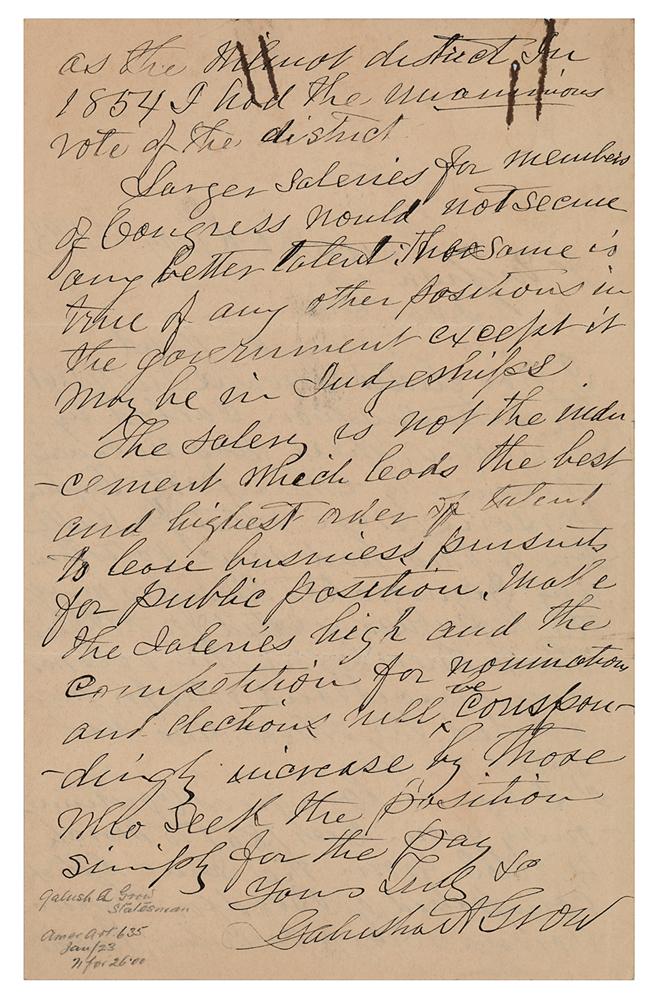 as the Wilmot district In
1854 I had the unanimious
vote of the district
Larger Saleries for members
of Congress would not secure
any better talent. The Same is
true of any other positions in
the government except it
may be in Judgeships
The Salery is not the indu-
-cement which leads the best
and highest order of talent
to leave business pursuits
for public position. Make
the Saleries high and the
competition for nominations
and elections will ^be corespon-
-dingly increase by those
who seek the position
simply for the pay
Yours Truly &c
Galusha A Grow
Galush A Grow
Statesman
Amer Art. 635
Jan/23
71 for 26.00